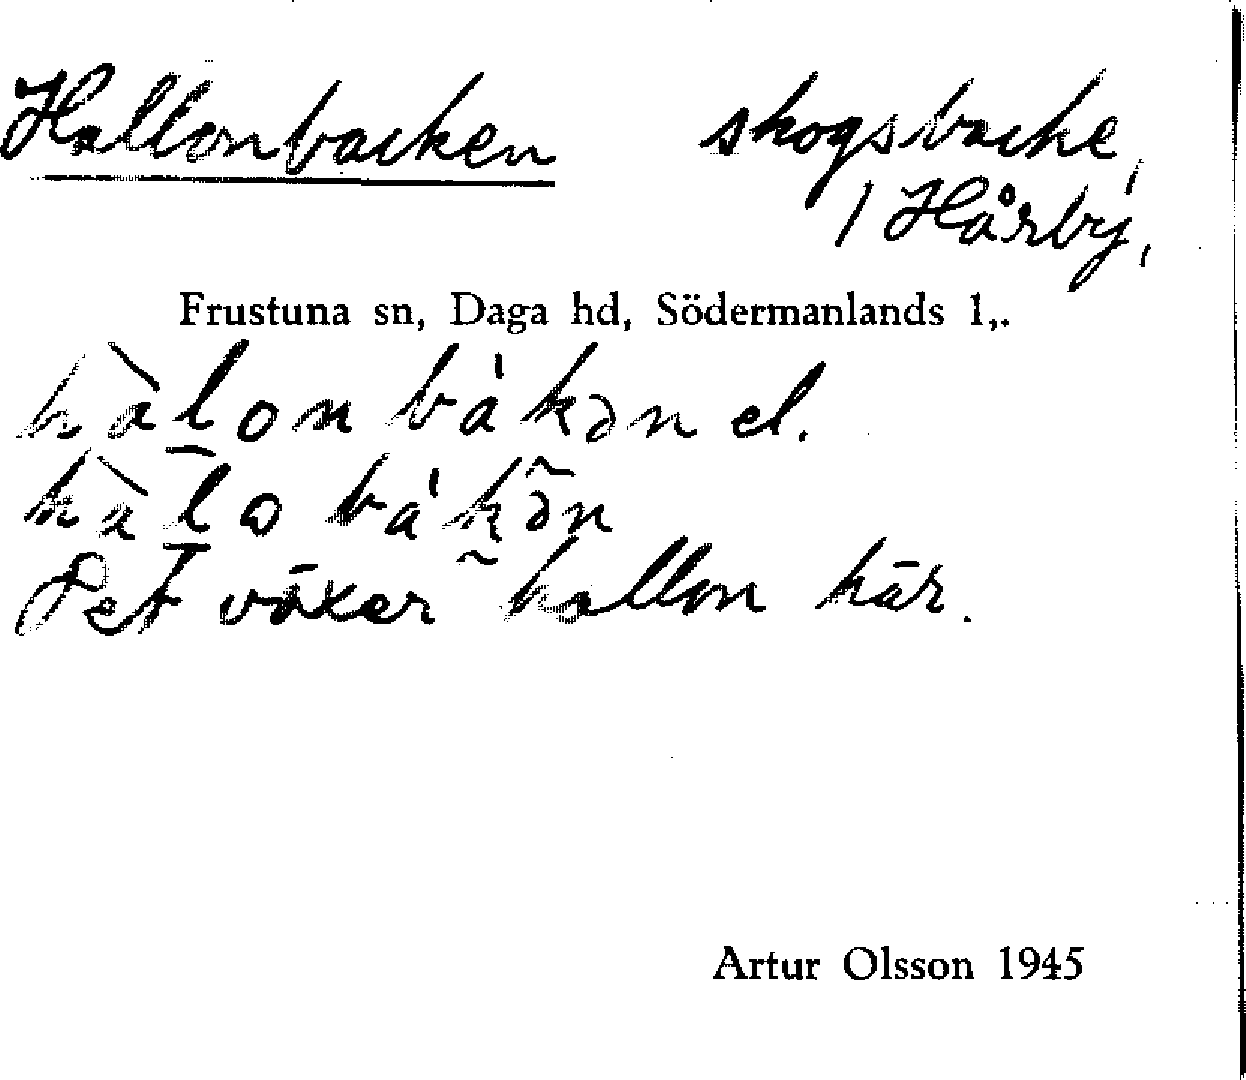 Hallonbacken skogsbacke,
/ Hårby,
Frustuna sn, Daga hd, Södermanlands l,.
hàlon bákən el.
hàlo bákən
Det växer hallon här.
Artur Olsson 1945